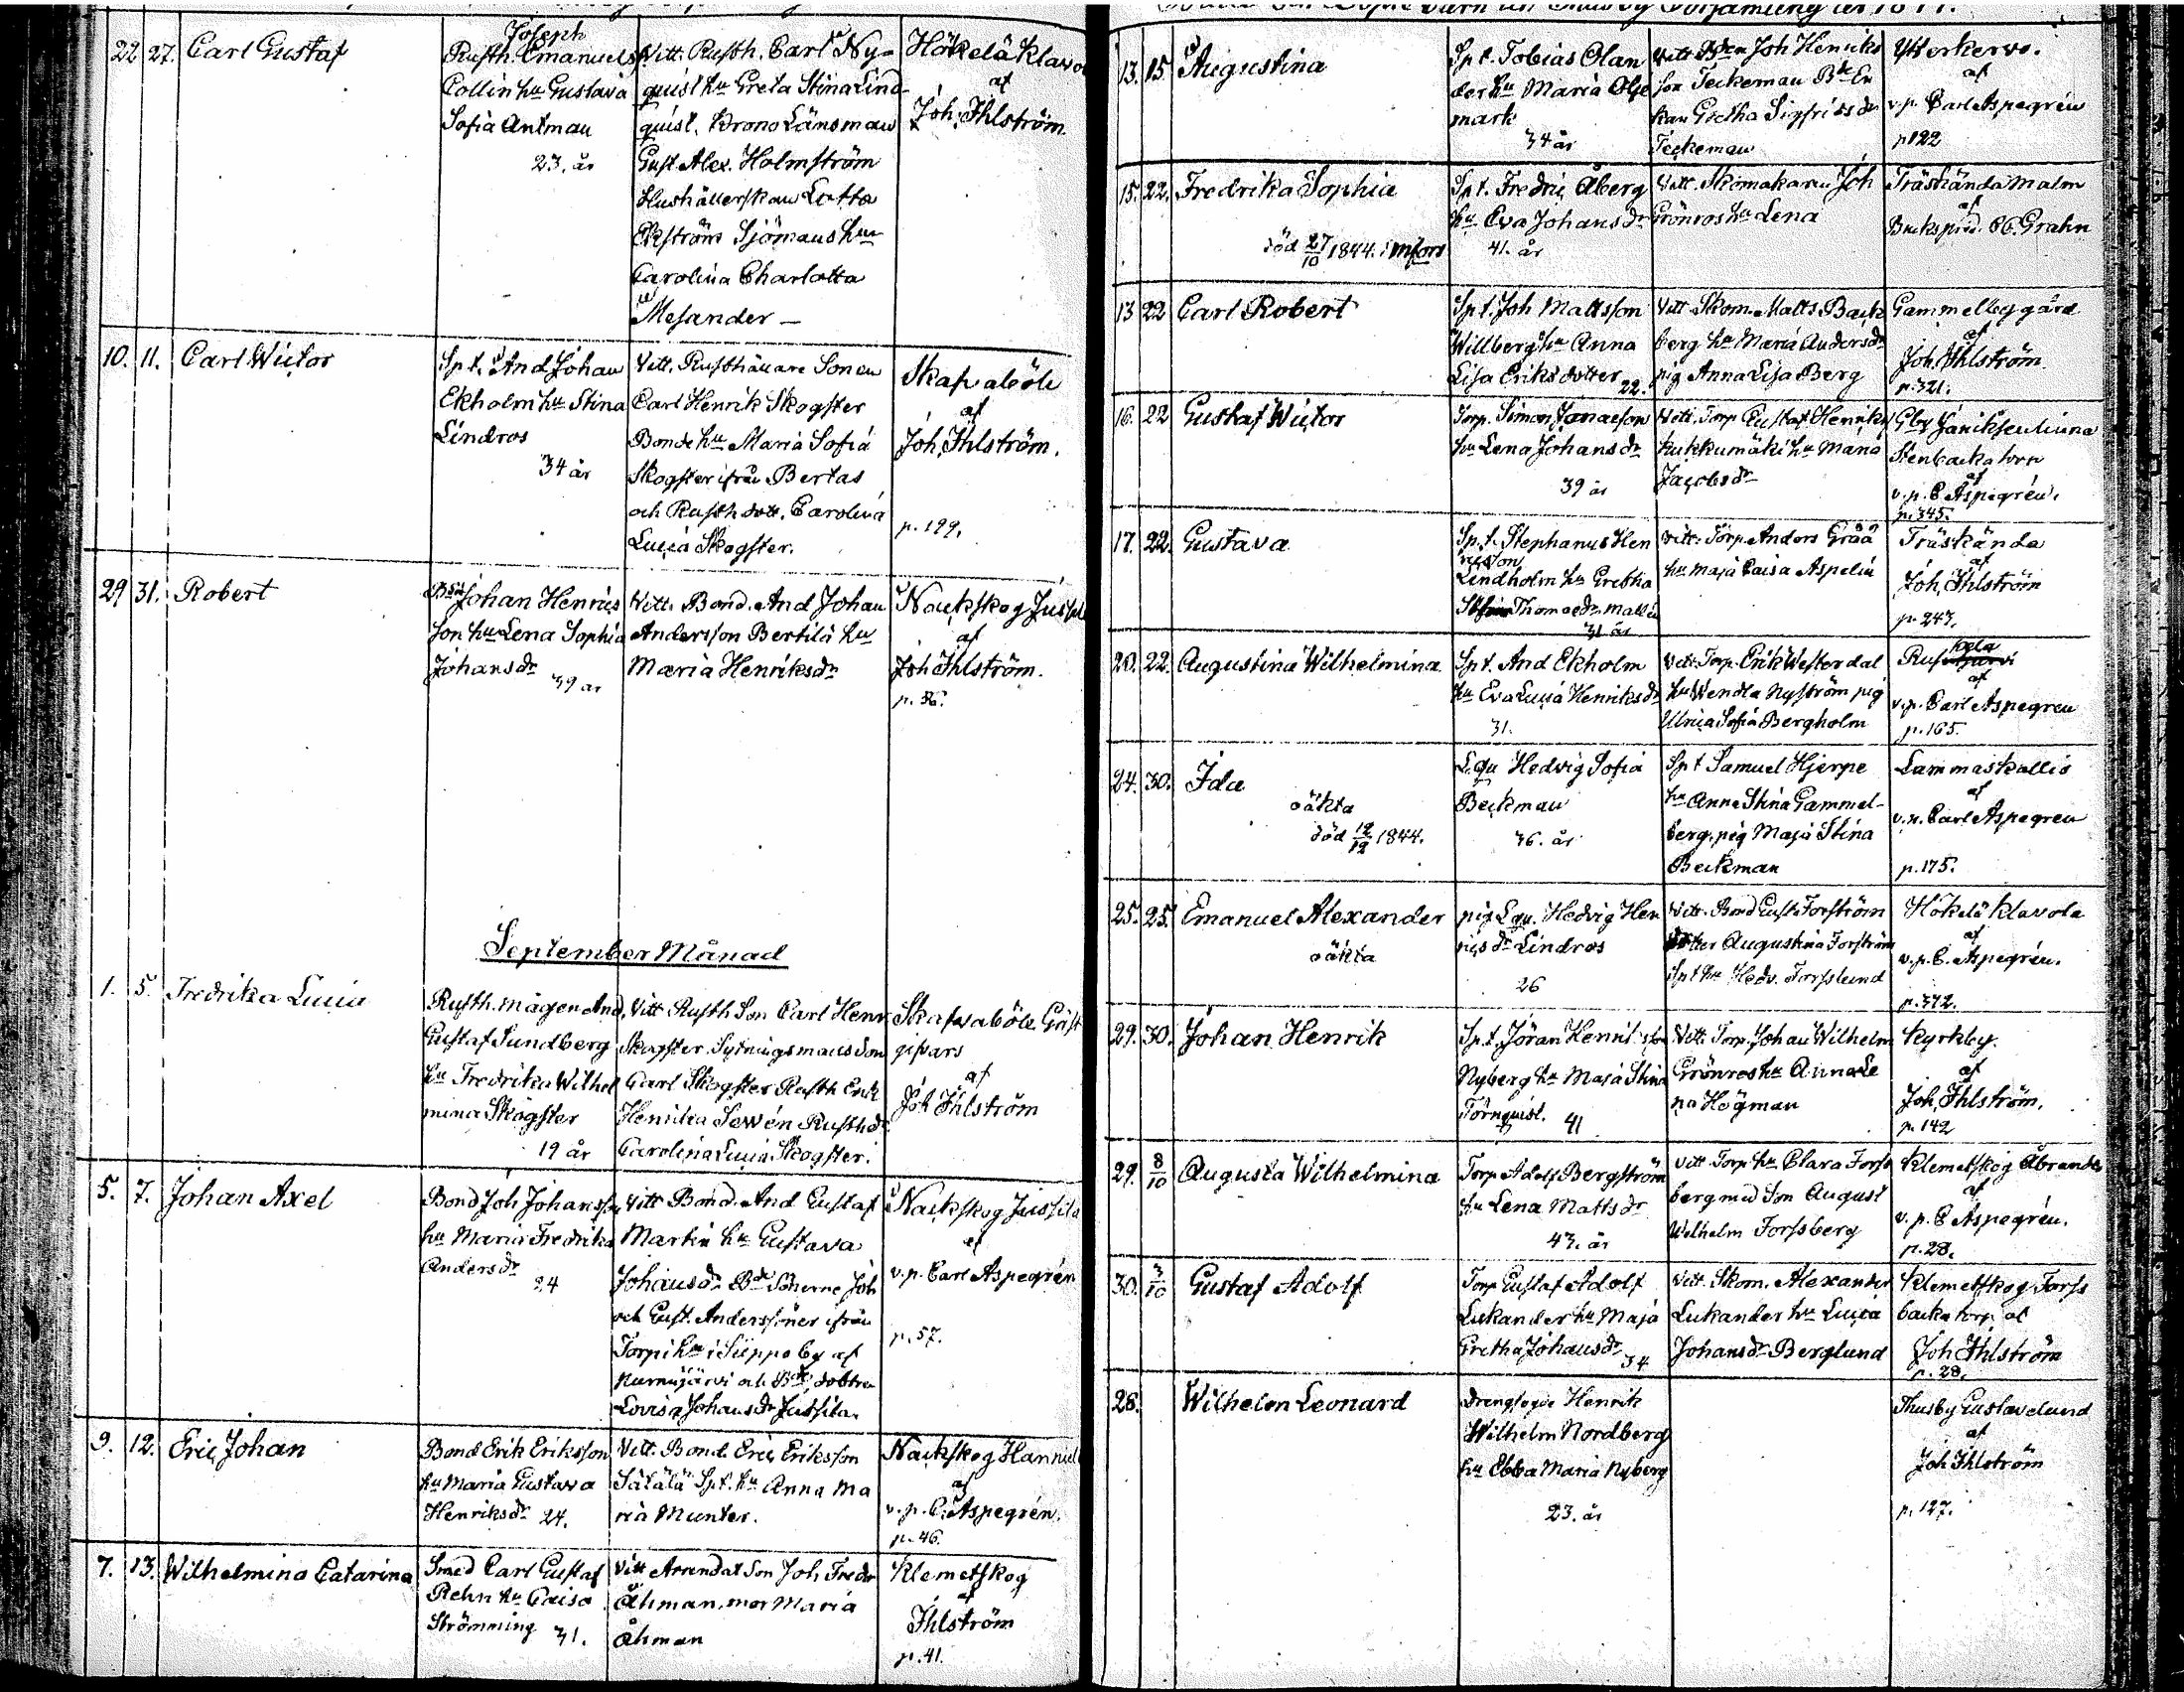 22. 27. Carl Gustaf
Joseph
Rusth. Emanuels
Collin hu Gustava
Sofia Antman
23. år
Vitt. Rusth. Carl Ny-
quist hu Greta Stina Lind-
quist, Krono Länsman
Gust. Alex. Holmström
Hushållerskan Lotta
Ekström Sjömans hu
Carolina Charlotta
Mesander –
Hökelä Klavo
af
Joh. Ihlström
10. 11. Carl Wictor
Spt. And Johan
Ekholm hu Stina
Lindros
34 år
Vitt. Rusthållare Sonen
Carl Henrik Skogster
Bonde hu Maria Sofia
Skogster ifrån Bertas
och Rusth dott. Carolina
Lucia Skogster.
Skafvaböle
af
Joh. Ihlström.
p. 199.
29 31. Robert
Bdn Johan Henrics
son hu Lena Sophia
Johansdr
39 år
Vitt. Bond. And Johan
Andersson Bertila hu
Maria Henriksdr
Nackskog Jussila
af
Joh Ihlström.
p. 56.
September Månad
1. 5. Fredrika Lucia
Rusth. mågen And.
Gustaf Sundberg
hu Fredrika Wilhel
mina Skogster
19 år
Vitt Rusth Son Carl Henr
Skogster. Sytningsmans Son
Carl Skogster Rusth Erik
Henrika Sevén Rusthdr
Carolina Lucia Skogster.
Skafvaböle Gäst
gifvars
af
Joh Ihlström
5. 7. Johan Axel
Bond Joh Johansson
hu Maria Fredrika
Andersdr
24
Vitt Bond. And Gustaf
Martin hu Gustava
Johansdr Bde Sönerne Joh
och Gust. Anderssöner ifrån
Torpi hu i Siippo by af
Nurmijärvi och Bde dottren
Lovisa Johansdr Jussila.
Nackskog Jussila
af
v.p. Carl Aspegrén
p. 57.
9. 12. Eric Johan
Bond Erik Eriksson
hu Maria Gustava
Henriksdr 24.
Vitt. Bond. Eric Eriksson
Sätälä Spt. hu Anna Ma
ria Munter.
Nackskog Hannula
af
v.p. C. Aspegrén.
p. 46.
7. 13. Wilhelmina Catarina
Smed Carl Gustaf
Rehn hu Caisa
Strömming 31.
Vitt Arrendat Son Joh Fredr
Åhman, mor Maria
Åhman
Klemetskog
af
Ihlström
p. 41.
13. 15 Augustina
Spt. Tobias Olan
der hu Maria Olje
mark
34 år
Vitt Bden Joh Henriks
son Teckeman Bde En
kan Gretha Sigfridsdr
Teckeman
Ytterkervo.
af
v.p. Carl Aspegrén
p 122
15. 22. Fredrika Sophia
död 27/10 1844.
Spt. Fredric Åberg
hu Eva Johansdr
41. år
Vitt. Skomakaren Joh
Grönros hu Lena
Träskända Malm
af
Brukspred. Grahn
13 22 Carl Robert
Spt. Joh Mattsson
Willberg hu Anna
Lisa Eriksdotter 22.
Vitt Skom. Matts Back
berg hu Maria Andersdr
pig Anna Lisa Berg
Gammelby gård
af
Joh. Ihlström
p. 321.
16. 22 Gustaf Wictor
Torp. Simon Jonasson
hu Lena Johansdr
39 år
Vitt. Torp Gustaf Henriks
Kukkumäki hu Maria
Jacobsdr
Stenbacka torp
af
v.p. C Aspegrén.
p. 345.
17. 22. Gustava
Spt. Stephanus Hen
ricsson
Lindholm hu Gretha
Thomaedr
31 år
Vitt. Torp Anders Gråå
hu Maja Caisa Aspelin
Träskända
af
Joh, Ihlström
p. 247.
20. 22. Augustina Wilhelmina
Spt. And Ekholm
hu Eva Lucia Henriksdr
31.
Vitt. Torp. Erik Westerdal
hu Wendla Nyström pig
Ulrica Sofia Bergholm
af
v.p. Carl Aspegren
p. 165.
24. 30. Ida
oäkta
död 12/12 1844.
L. qu Hedvig Sofia
Beckman
36. år
Spt Samuel Hjerpe
hu Anna Stina Gammel-
berg, pig Maja Stina
Beckman
Lammaskallio
af
v.p. Carl Aspegren
p. 175.
25. 25. Emanuel Alexander
oäkta
pig L qu. Hedvig Hen
ricsdr Lindros
26
Vitt. Bond Gust. Forström
dotter Augustina Forström
Spt hu Hedv. Forsslund
Hökelä Klavola
af
v.p. C. Aspegrén.
p. 372.
29. 30. Johan Henrik
Spt. Jöran Henricsson
Nyberg hu Maja Stina
Törnquist. 41
Vitt. Torp. Johan Wilhelm
Grönros hu Anna Le
na Högman
Kyrkby.
af
Joh, Ihlström.
p. 142
29. 8/10 Augusta Wilhelmina
Torp Adolf Bergström
hu Lena Mattsdr
43. år
Vitt Torp hu Clara Forss
berg med Son August
Wilhelm Forssberg
Klemetskog Åbrandes
af
v.p. C Aspegrén.
p. 28.
30. 3/10 Gustaf Adolf
Torp Gustaf Adolf
Lukander hu Maja
Gretha Johansdr 34
Vitt. Skom. Alexander
Lukander hu Lucia
Johansdr Berglund
Klemetskog Forss
backa torp af
Joh Ihlström
p. 28.
28. Wilhelm Leonard
Henrik
Wilhelm Nordberg
hu Ebba Maria Nyberg
23. år
Thusby Gustavelund
af
Joh Ihlström
p. 127.